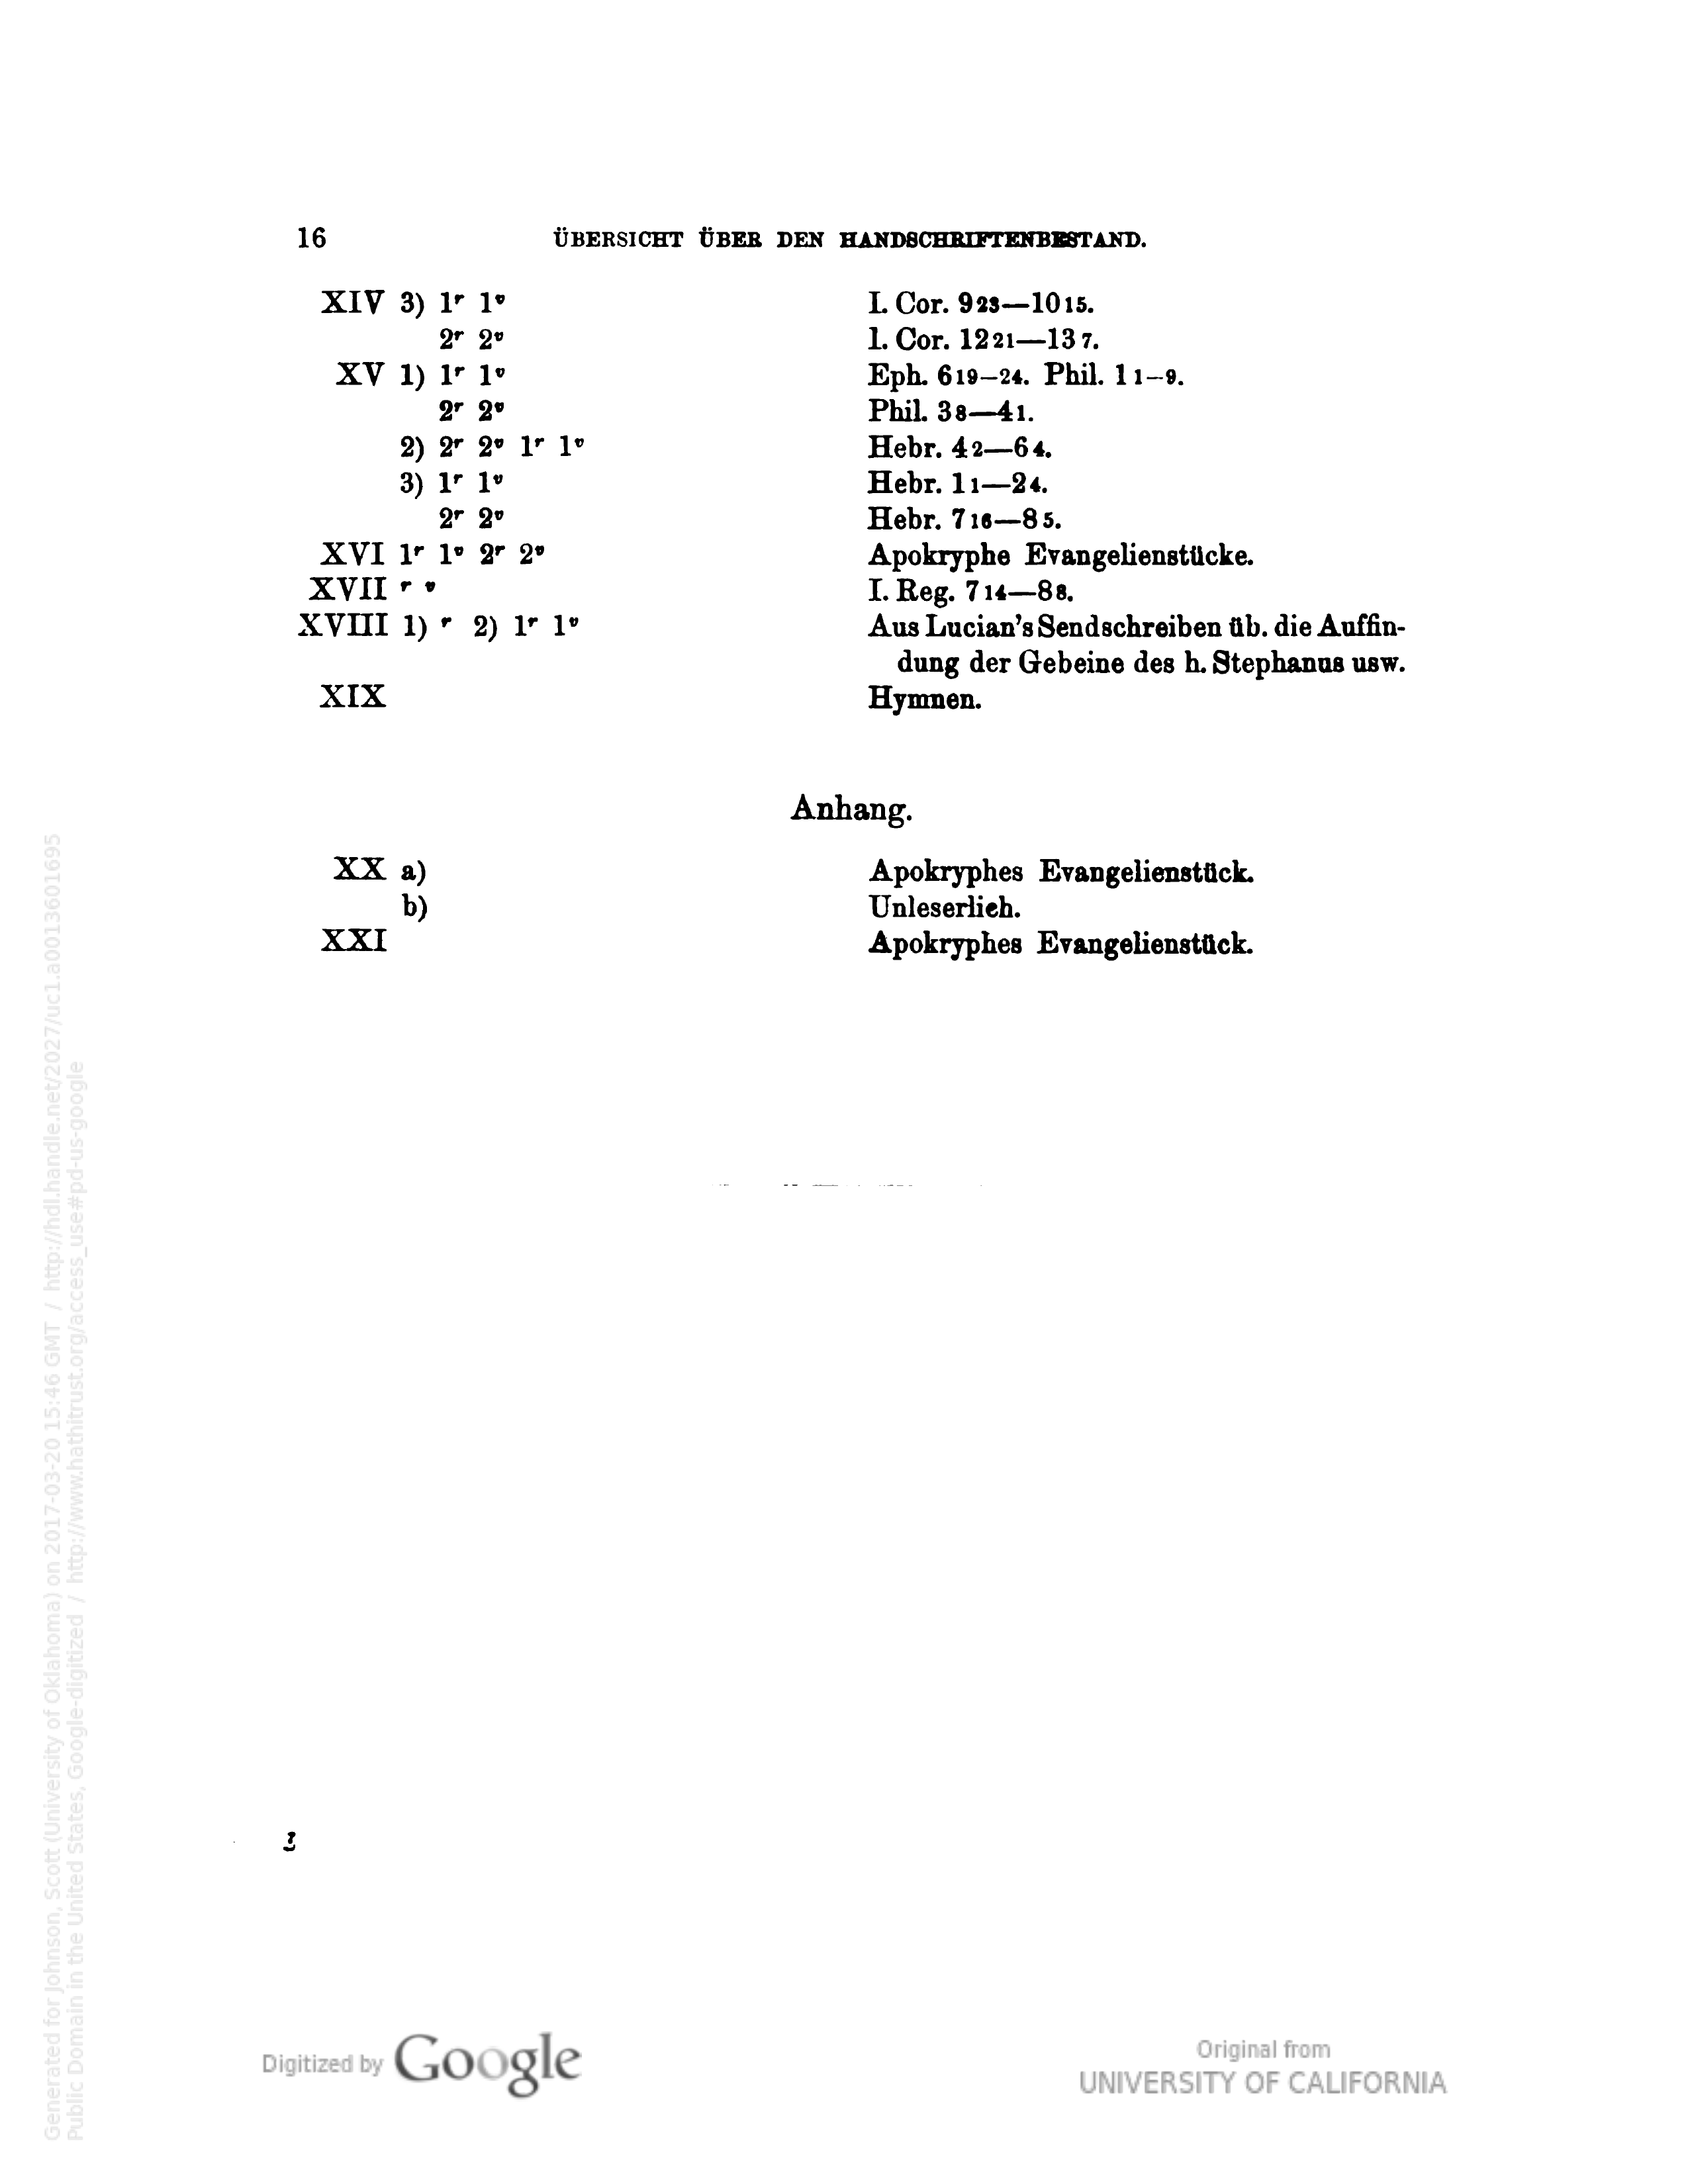 16 ÜBERSICHT ÜBER DEN HANDSCHRIFTENBESTAND.
XIV 3) 1r 1v I. Cor. 9 23—10 15.
2r 2v I. Cor. 12 21—13 7.
XV 1) 1r 1v Eph. 6 19—24. Phil. 1 1—9.
2r 2v Phil. 3 8—4 1.
2) 2r 2v 1r 1v Hebr. 4 2—6 4.
3) 1r 1v Hebr. 1 1—2 4.
2r 2v Hebr. 7 16—8 5.
XVI 1r 1v 2r 2v Apokryphe Evangelienstücke.
XVII r v I. Reg. 7 14—8 8.
XVIII 1) r 2) 1r 1v Aus Lucian's Sendschreiben üb. die Auffin-
dung der Gebeine des h. Stephanus usw.
XIX Hymnen.
Anhang.
XX a) Apokryphes Evangelienstück.
b) Unleserlich.
XXI Apokryphes Evangelienstück.
Digitized by Google
Original from
UNIVERSITY OF CALIFORNIA
Generated for Johnson, Scott (University of Oklahoma) on 2017-03-20 15:46 GMT / http://hdl.handle.net/2027/uc1.a0013601695
Public Domain in the United States, Google-digitized / http://www.hathitrust.org/access_use#pd-us-google